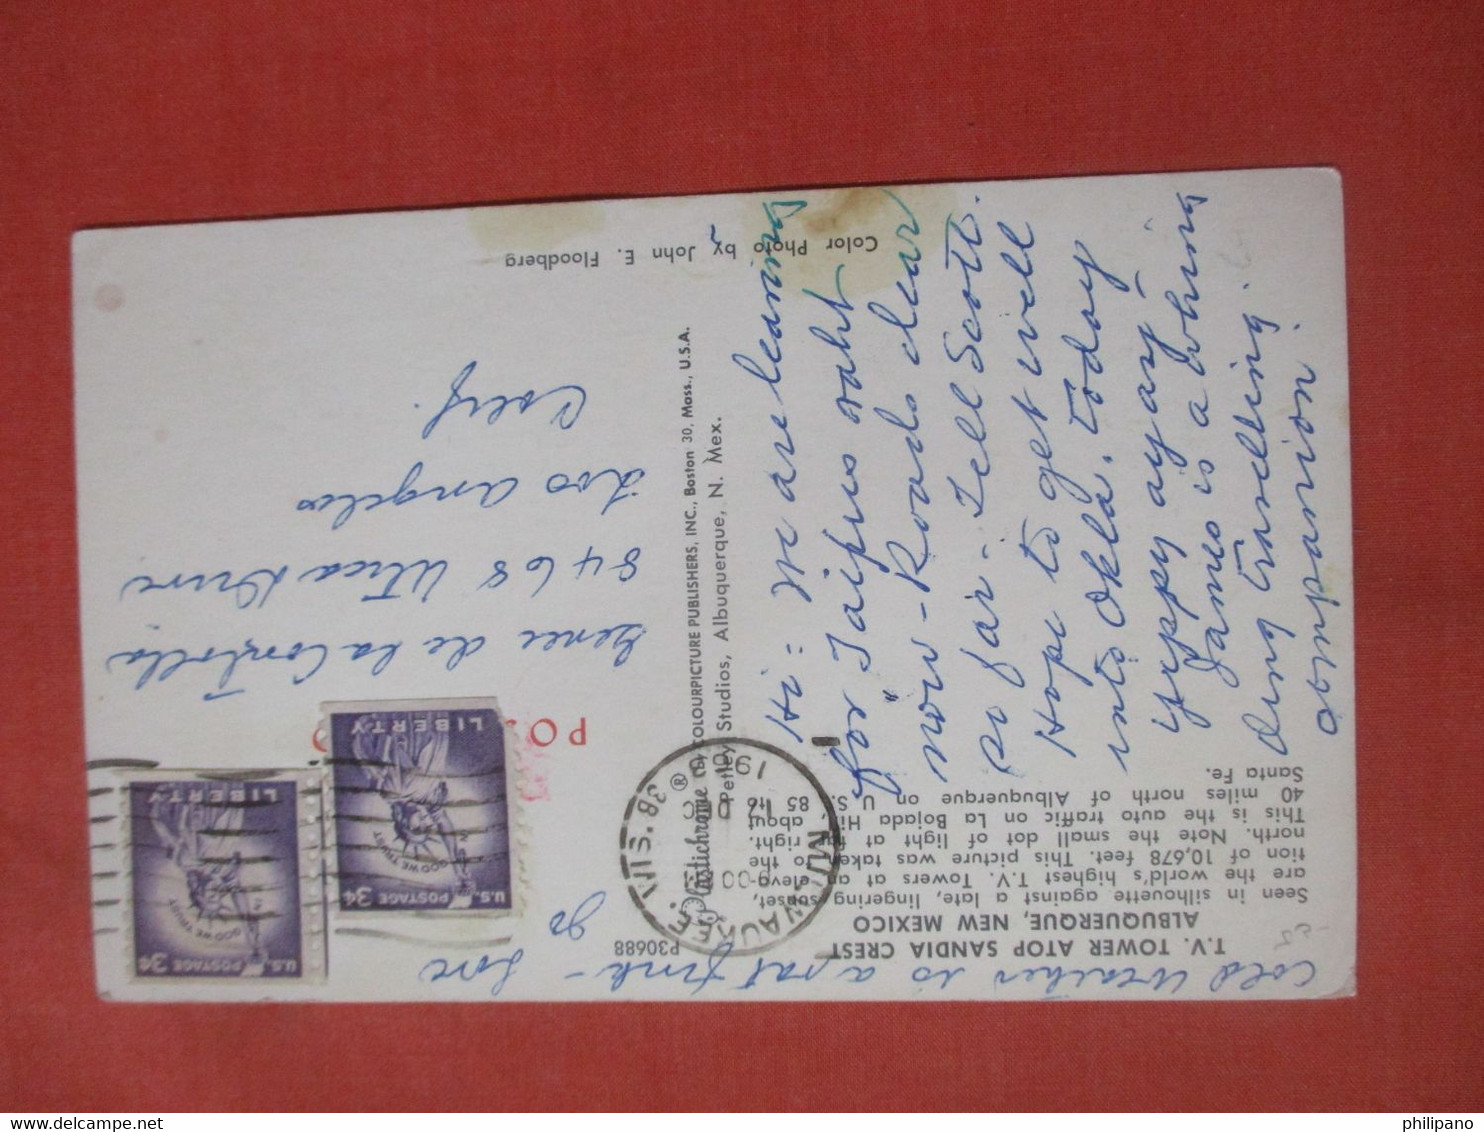 T.V. TOWER ATOP SANDIA CREST
ALBUQUERQUE, NEW MEXICO
Seen in silhouette against a late, lingering sunset,
are the world's highest T.V. Towers at an eleva-
tion of 10,678 feet. This picture was taken to the
north. Note the small dot of light at far right.
This is the auto traffic on La Bajada Hill about
40 miles north of Albuquerque on U. S. 85 to
Santa Fe.
P30688
Hi: We are leaving
for Taipus right
now - Roads clear
so far - Tell Scott
Hope to get well
into Okla. today
yippy ay ay
James is a whing
ding travelling
companion
Cold weather to a rat fink -
Love
Jo
Plastichrome ® by COLOURPICTURE PUBLISHERS, INC., Boston 30, Mass., U.S.A.
Petley Studios, Albuquerque, N. Mex.
Color Photo by John E. Floodberg
PO
MILWAUKEE, WIS. 38
9:00
17 DEC
19
U.S. POSTAGE 3¢
IN GOD WE TRUST
LIBERTY
U.S. POSTAGE 3¢
IN GOD WE TRUST
LIBERTY
Genee de La Contrella
8468 Utica Drive
Los Angeles
Calif.
philipano